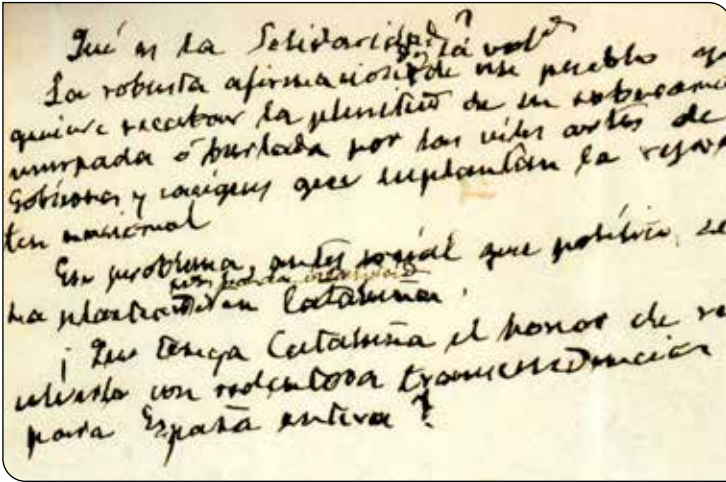 Qué es la Solidaridad?
La robusta afirmación de un pueblo q
quiere recabar la plenitud de su soberaní
usurpada ó burlada por las viles artes de
Gobiernos y caciques que suplantan la
nacional
Ese problema, antes social que político, se
ha planteado en Cataluña.
¡Que tenga Cataluña el honor de re
con redentora transcendencia
para España entera!